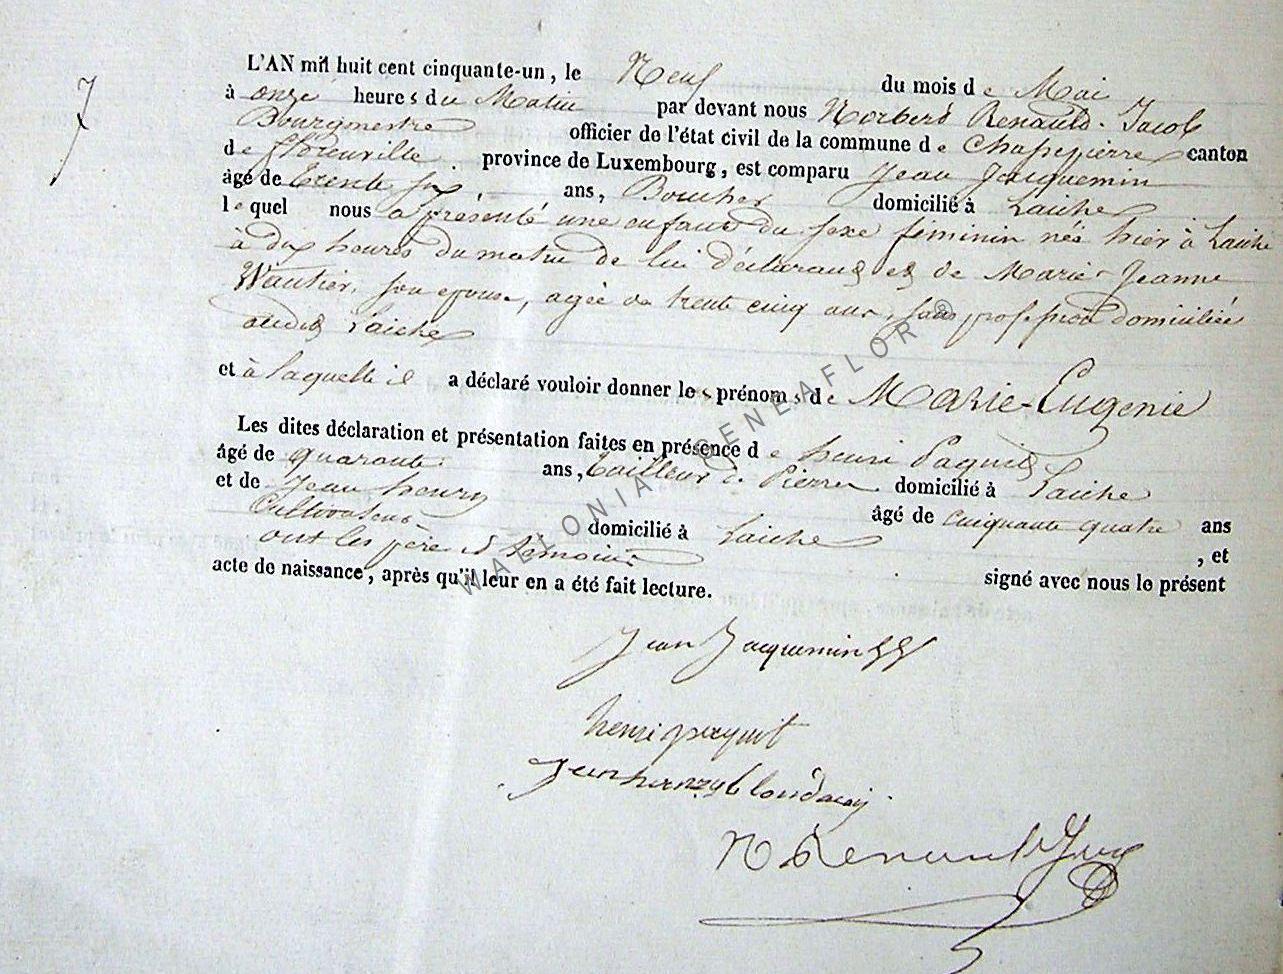 7
L'AN mil huit cent cinquante-un, le Neuf du mois de Mai
à onze heures du Matin par devant nous Norbert Renauld-Jacob
Bourgmestre officier de l'état civil de la commune de Chassepierre canton
de florenville. province de Luxembourg, est comparu Jean Jacquemin
âgé de trente six. ans, Boucher domicilié à Laiche
lequel nous a présenté une enfant du sexe féminin née hier à Laiche
à dix heures du matin de lui déclarant et de Marie-Jeanne
Wautier, son epouse, agée de trente cinq ans, sans profession domiciliée
audit Laiche
et à laquelle il a déclaré vouloir donner les prénoms de Marie-Eugenie
Les dites déclaration et présentation faites en présence de henri Paquit
âgé de quarante ans, tailleur de Pierre domicilié à Laiche
et de Jean henry âgé de cinquante quatre ans
Cultivateur domicilié à Laiche, et
ont les père et témoins signé avec nous le présent
acte de naissance, après qu'il leur en a été fait lecture.
WALLONIA GENEAFLOR ©
Jean Jacquemin
henri paquit
Jean henry
N Renauld Jacob